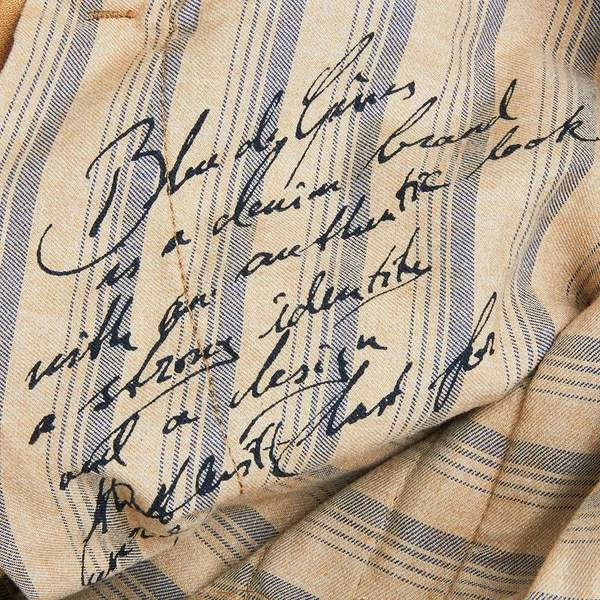 Blue de Gênes
is a denim brand
with an authentic look
a strong identite
and a design
that last for